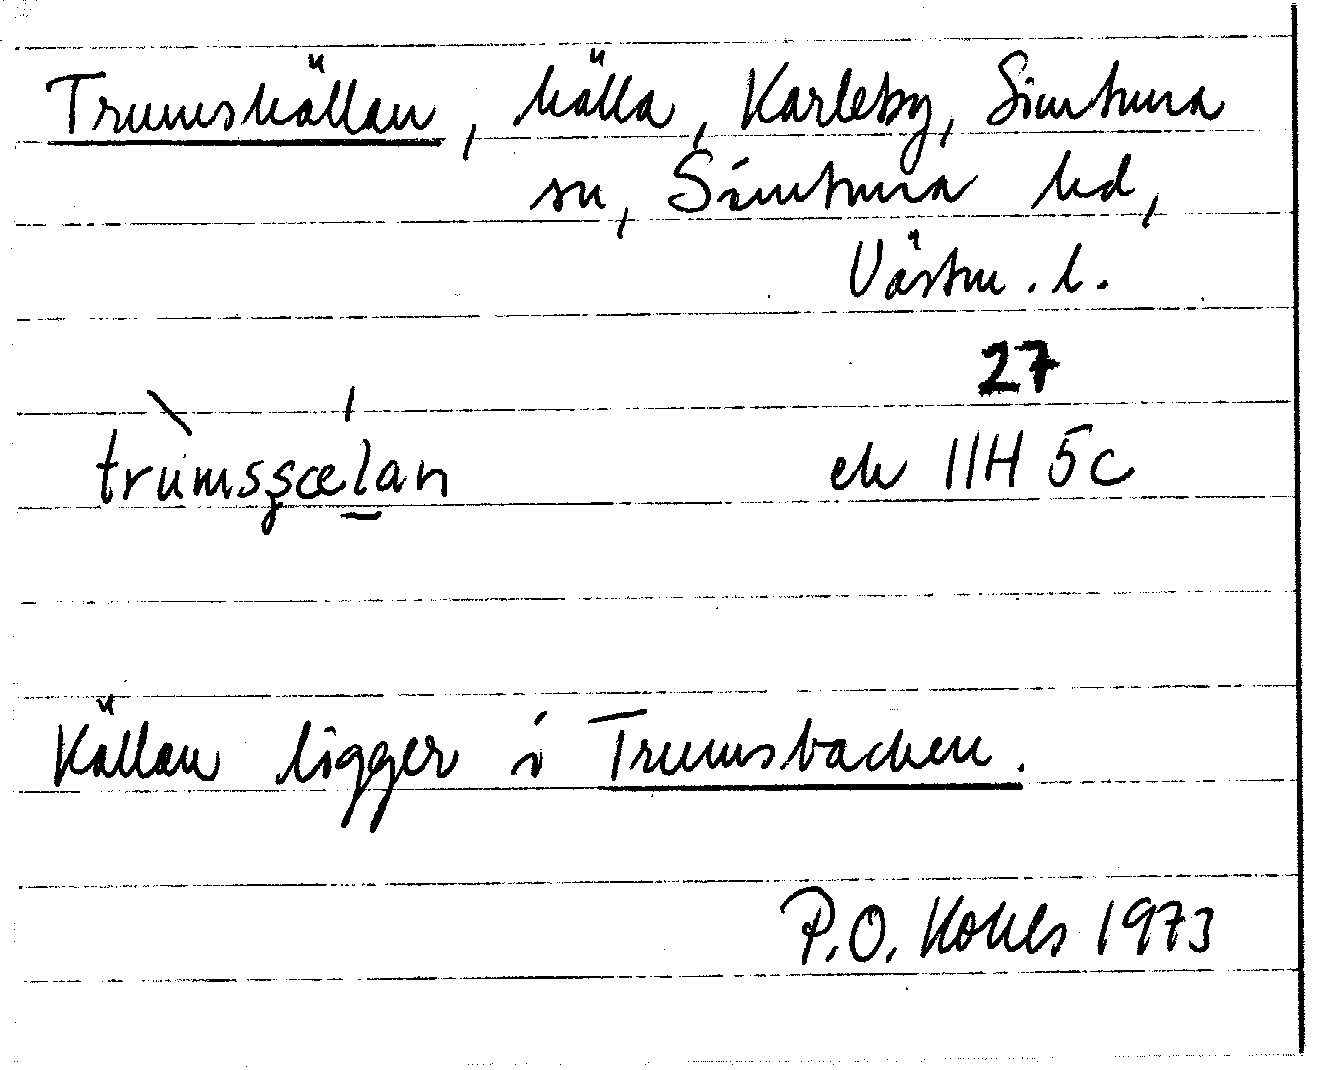 Trumskällan, källa, Karleby, Simtuna
sn, Simtuna hd,
Västm. l.
27
trùmsʂæ̀lan ek 11H 5c
Källan ligger i Trumsbacken.
P.O. 1973